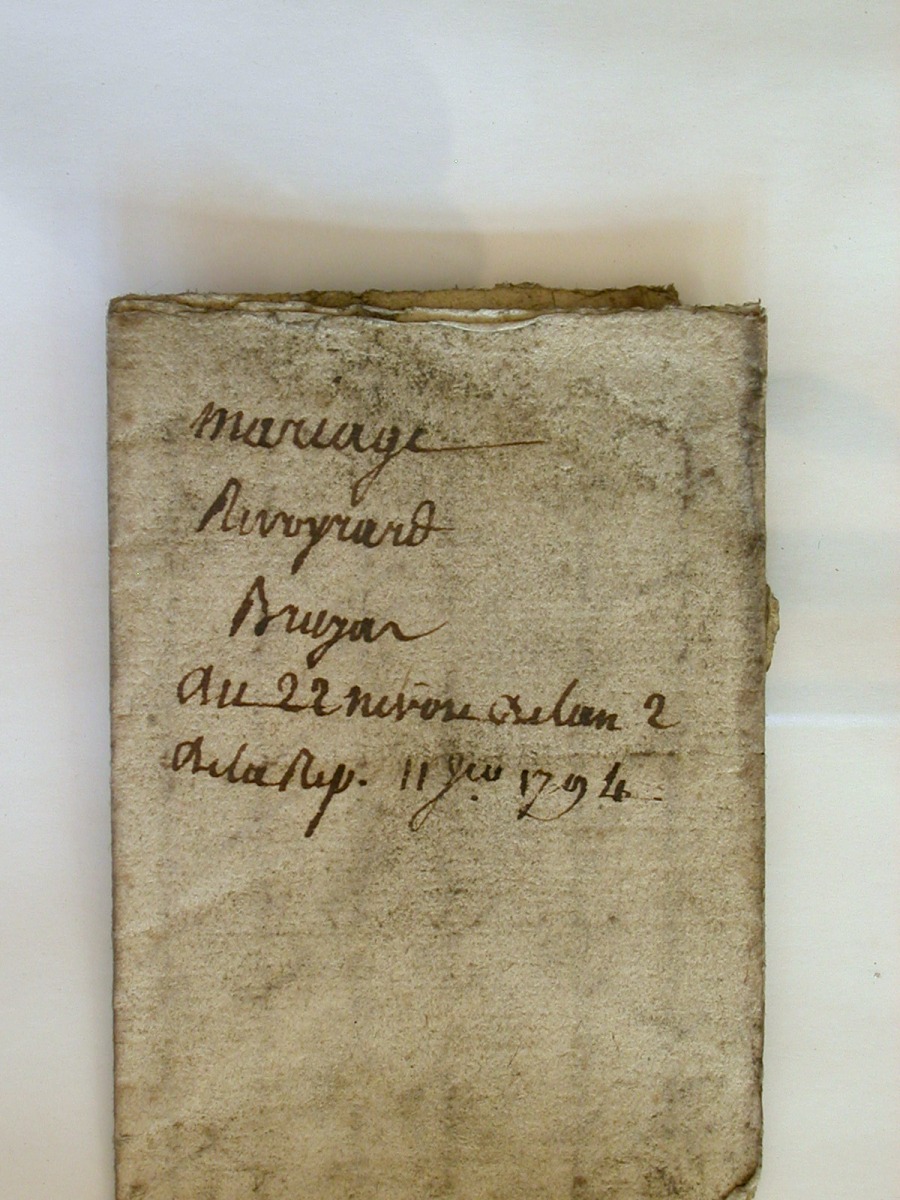 mariage
Rivoyrard
Bruyar
du 22 nivose de lan 2
de la Rep. 11 Jer 1794